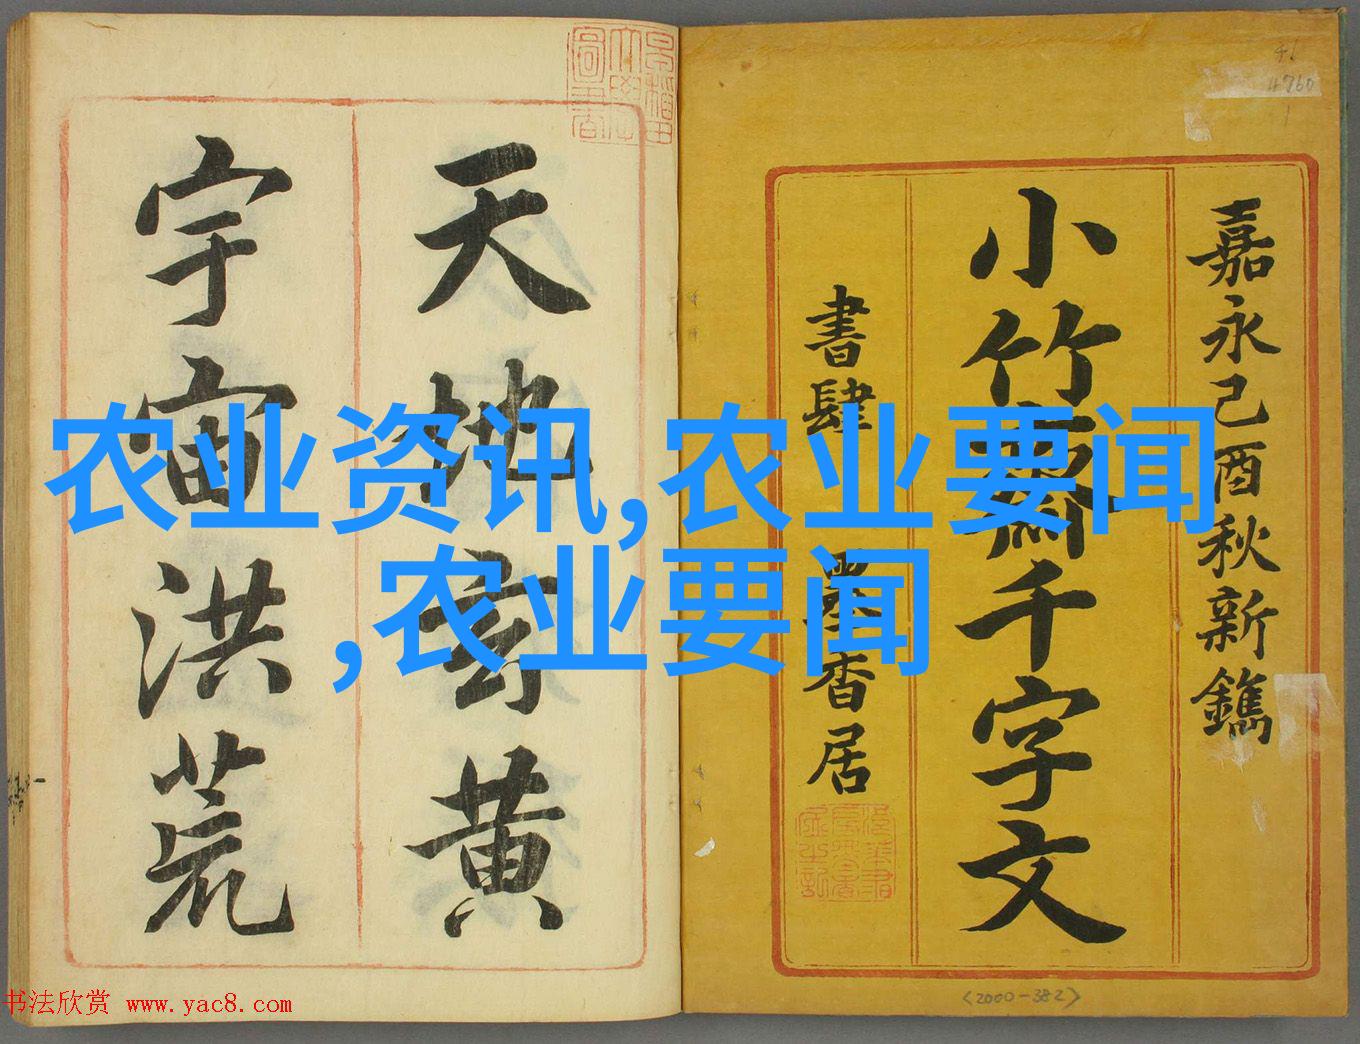 嘉永己酉秋新鐫
小竹齋千字文
書肆 墨香居
天地玄黄
宇宙洪荒
农业资讯,农业要闻
,农业要闻
41
4760
<2000-382>
书法欣赏 www.yac8.com